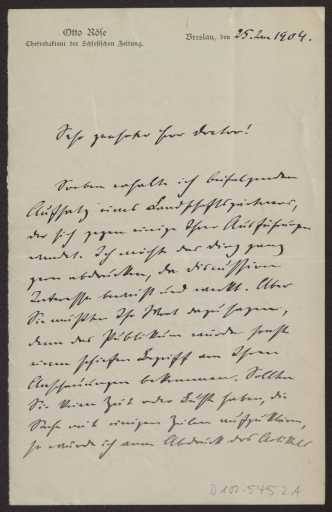 Otto Röse
Chefredakteur der Schlesischen Zeitung.
Breslau, den 25. Jan 1904.
Sehr geehrter Herr Doctor!
Soeben erhalte ich beifolgenden
Aufsatz eines Landschaftsgärtners,
der sich gegen einige Ihrer Ausführungen
wendet. Ich möchte das Ding ganz
gern abdrucken, da Discussion
Interesse beweist und weckt. Aber
Sie müßten Ihr Wort dazu sagen,
denn das Publikum würde sonst
einen schiefen Begriff von Ihren
Anschauungen bekommen. Sollten
Sie keine Zeit oder Lust haben, die
Sache mit einigen Zeilen aufzuklären,
so würde ich vom Abdruck des Artikels
D 101-5452 A